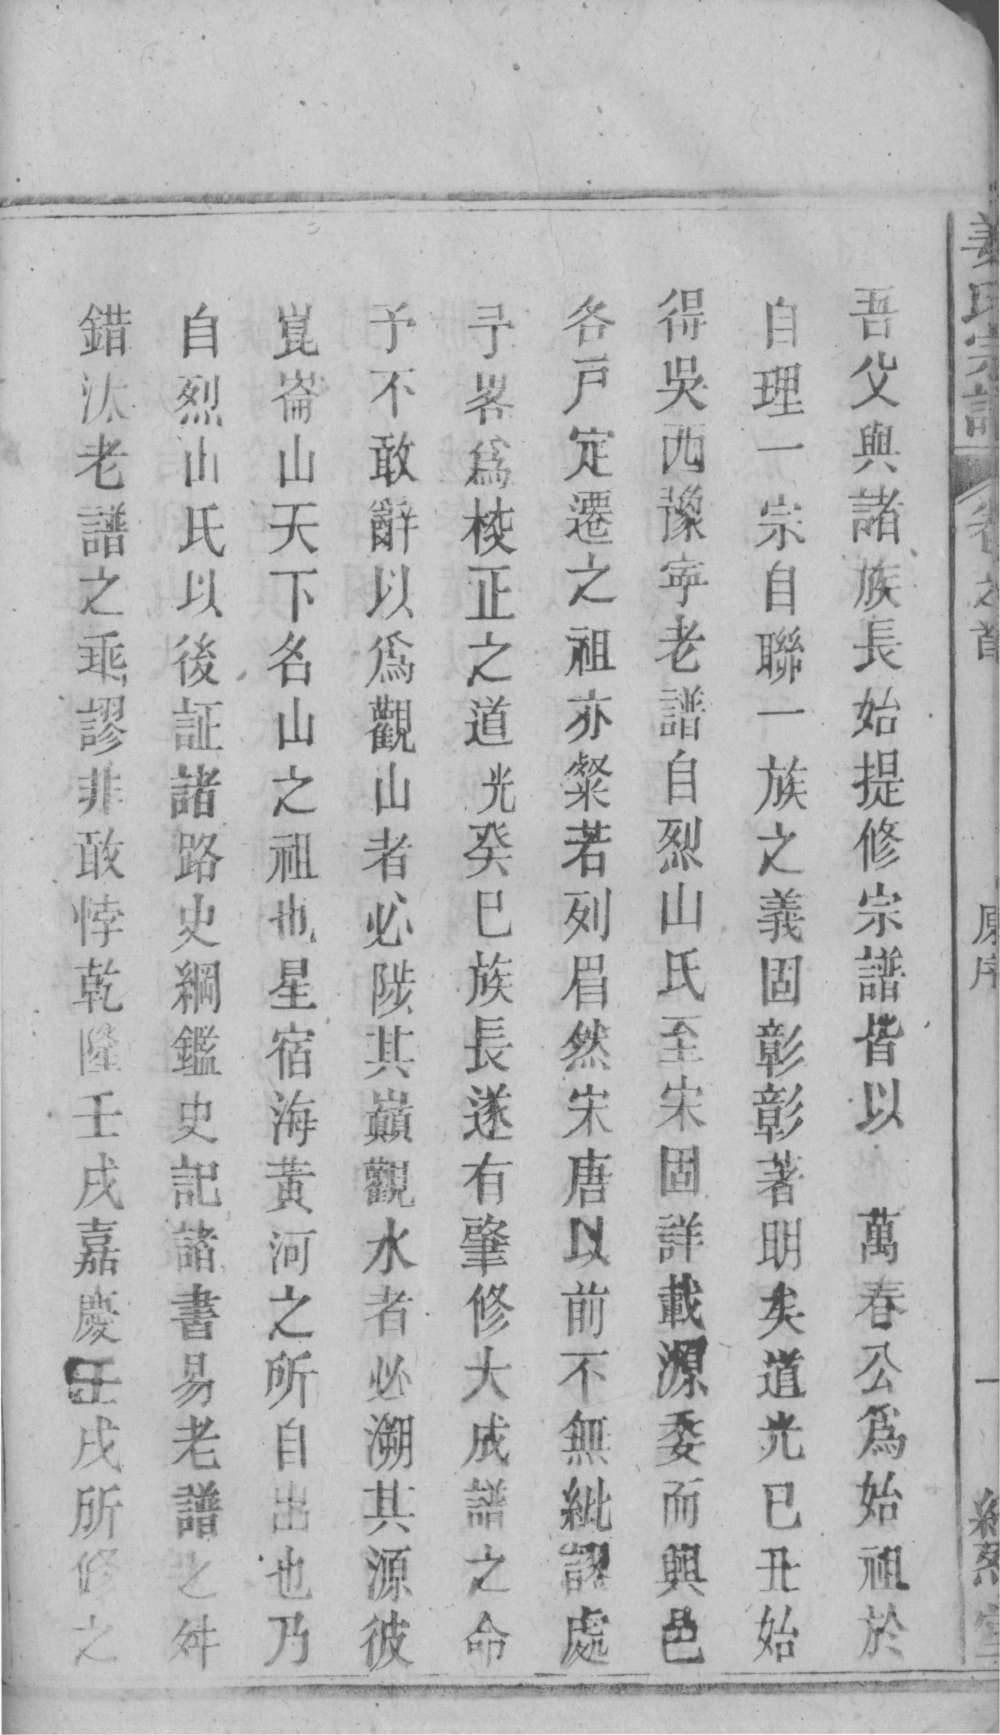 姜氏宗譜 卷之首 原序 一
吾父與諸族長始提修宗譜皆以 萬春公爲始祖於
自理一宗自聯一族之義固彰彰著明矣道光已丑始
得吳西豫寧老譜自烈山氏至宋固詳載源委而興邑
各戸定遷之祖亦粲若列眉然宋唐以前不無紕謬處
予畧爲校正之道光癸巳族長遂有肇修大成譜之命
予不敢辭以爲觀山者必陟其巔觀水者必溯其源彼
崑崙山天下名山之祖也星宿海黃河之所自出也乃
自烈山氏以後証諸路史綱鑑史記諸書易老譜之舛
錯汰老譜之乖謬非敢悖乾隆壬戌嘉慶壬戌所修之